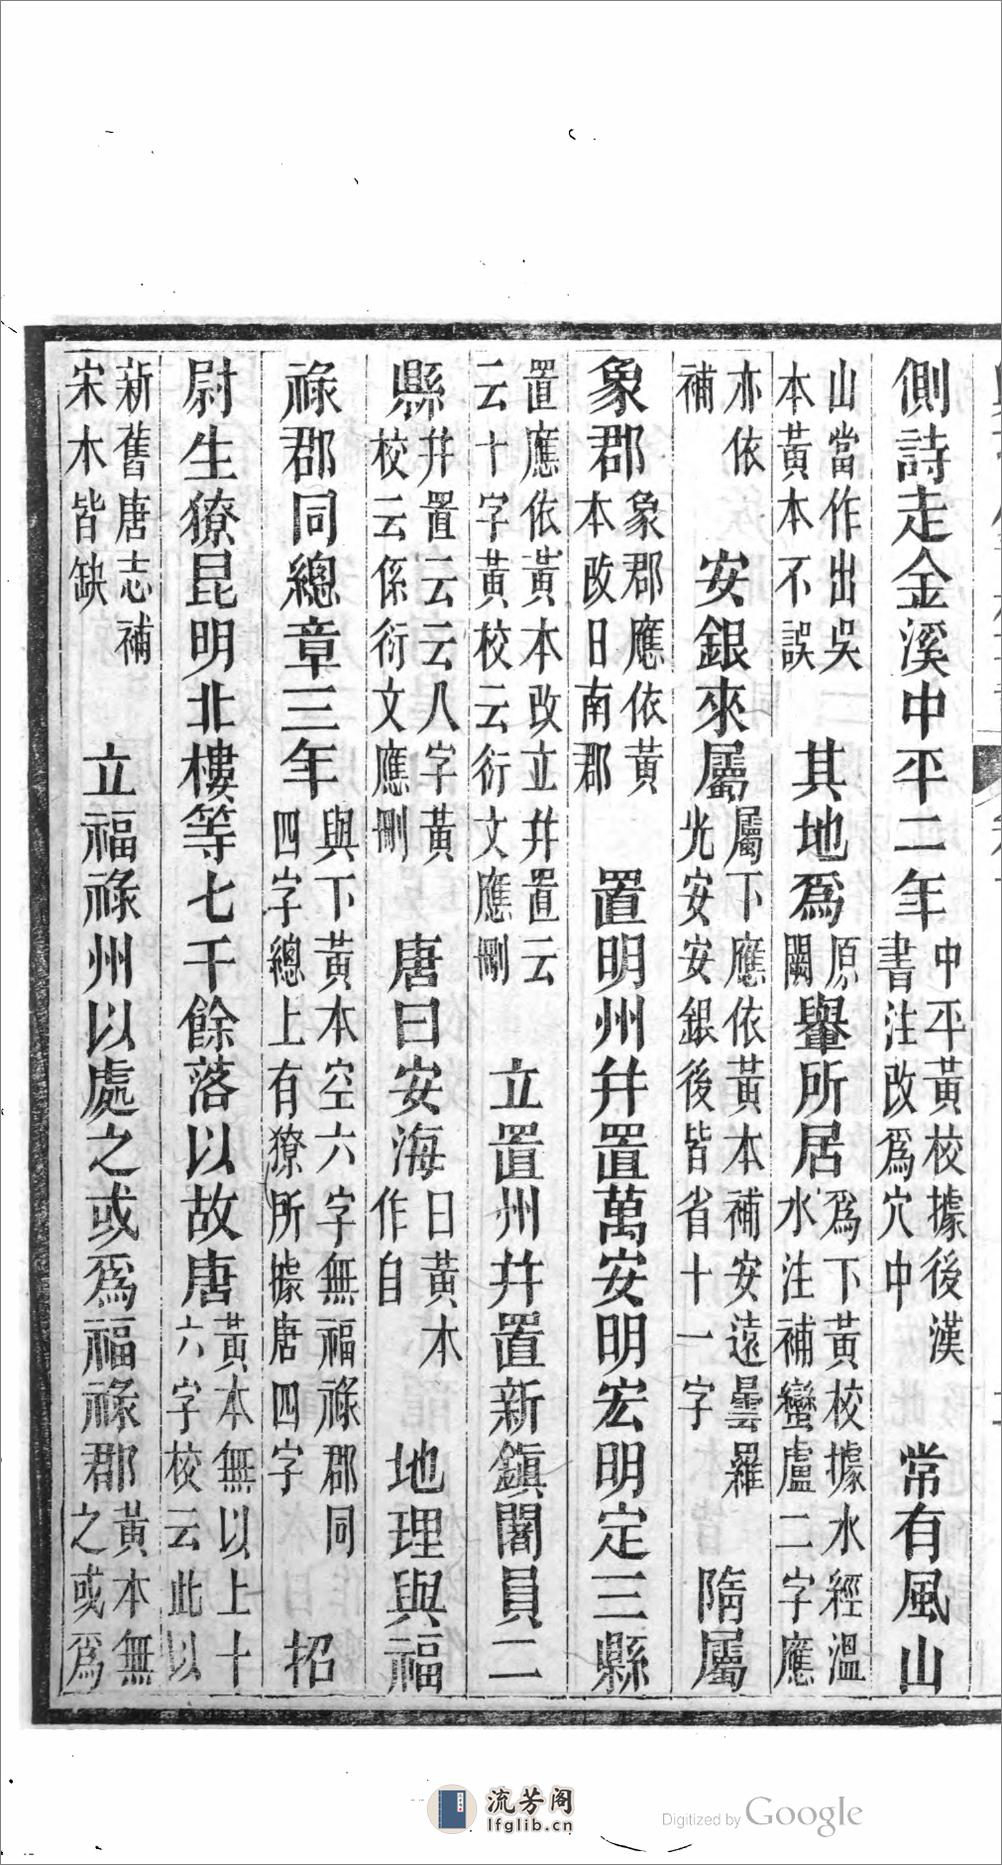 側詩走金溪中平二年中平黃校據後漢書注改爲穴中　常有風山
山當作出吳本黃本不誤　其地爲原闕轝所居爲下黃校據水經溫水注補蠻盧二字應
亦依補　安銀來屬屬下應依黃本補安遠曇羅光安安銀後皆省十一字　隋屬
象郡象郡應依黃本改日南郡　置明州幷置萬安明宏明定三縣
置應依黃本改立幷置云云十字黃校云衍文應刪　立置州幷置新鎮闍員二
縣幷置云云八字黃校云係衍文應刪　唐曰安海曰黃本作自　地理與福
祿郡同總章三年與下黃本空六字無福祿郡同四字總上有獠所據唐四字　招
尉生獠昆明北樓等七千餘落以故唐黃本無以上十六字校云此以
新舊唐志補宋木皆缺　立福祿州以處之或爲福祿郡黃本無之或爲
流芳阁
lfglib.cn
Digitized by Google